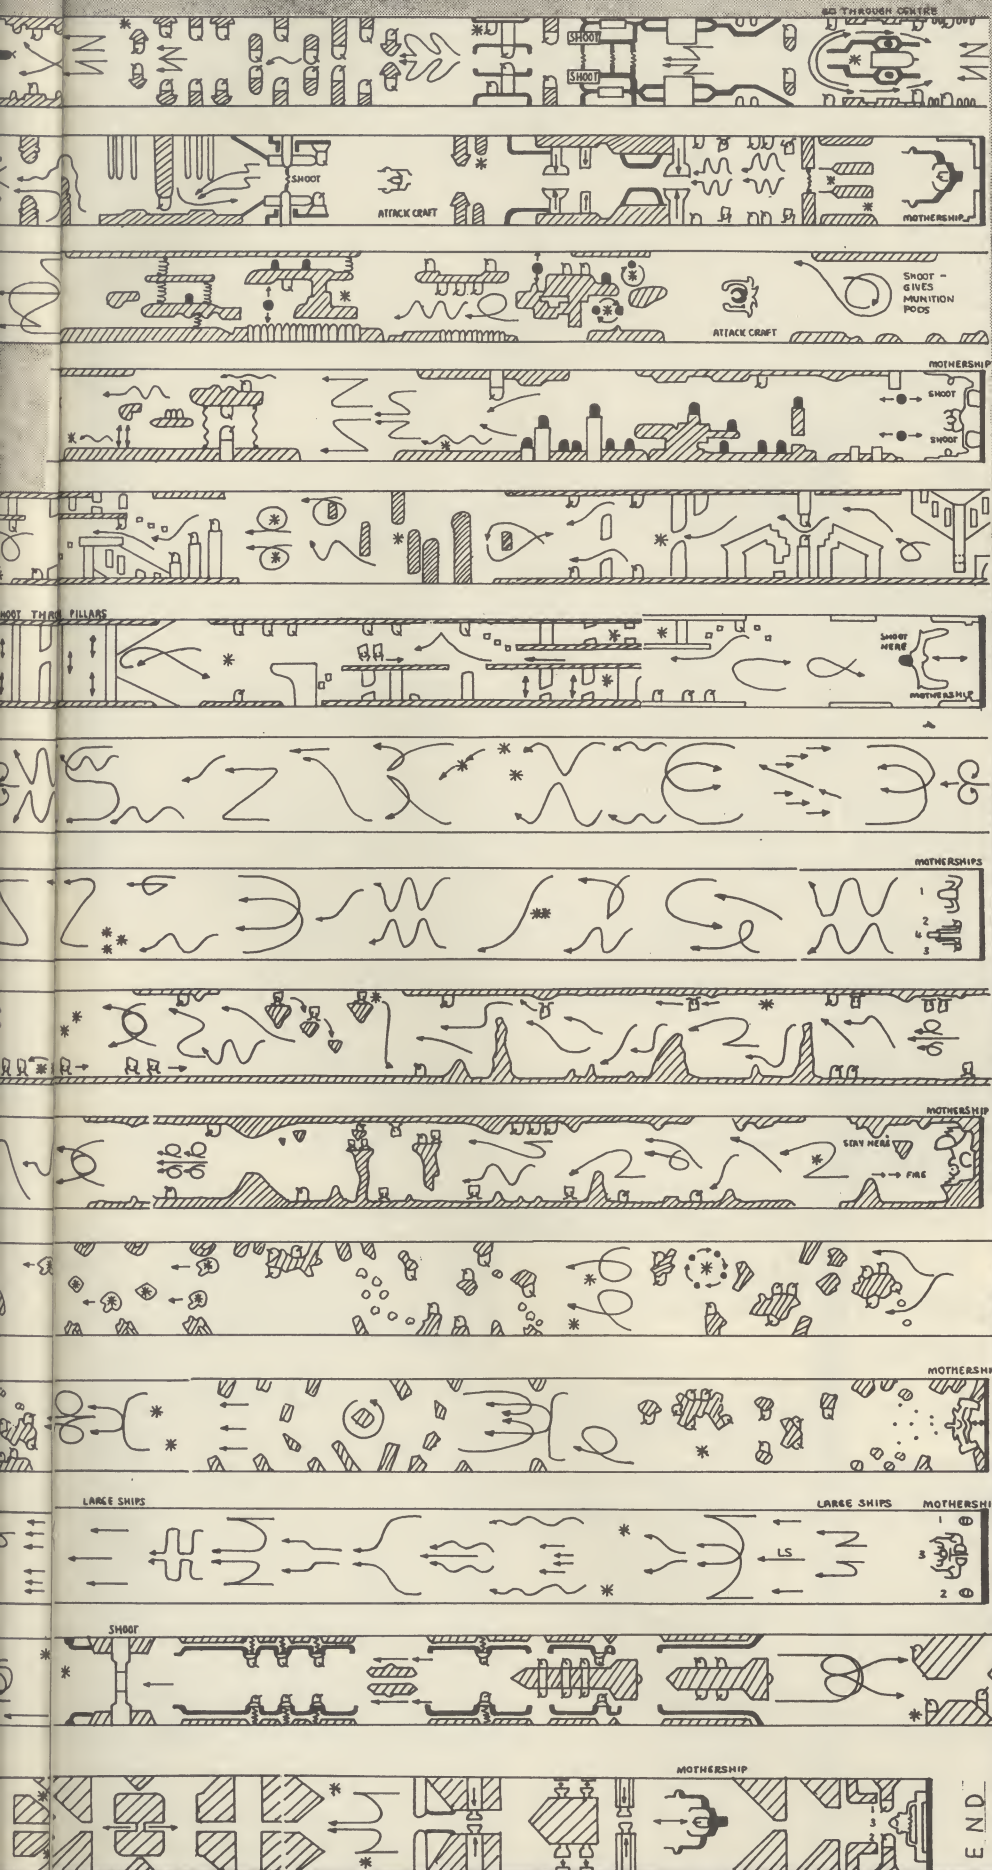 GO THROUGH CENTRE
SHOOT
SHOOT
SHOOT
ATTACK CRAFT
MOTHERSHIP
SHOOT -
GIVES
MUNITION
PODS
ATTACK CRAFT
MOTHERSHIP
SHOOT
SHOOT
HOOT THRO PILLARS
SHOOT
HERE
MOTHERSHIP
MOTHERSHIPS
1
2
4
3
MOTHERSHIP
STAY HERE
FIRE
MOTHERSHI
LARGE SHIPS
LARGE SHIPS
MOTHERSHI
1
3
LS
2
SHOOT
MOTHERSHIP
1
3
2
END